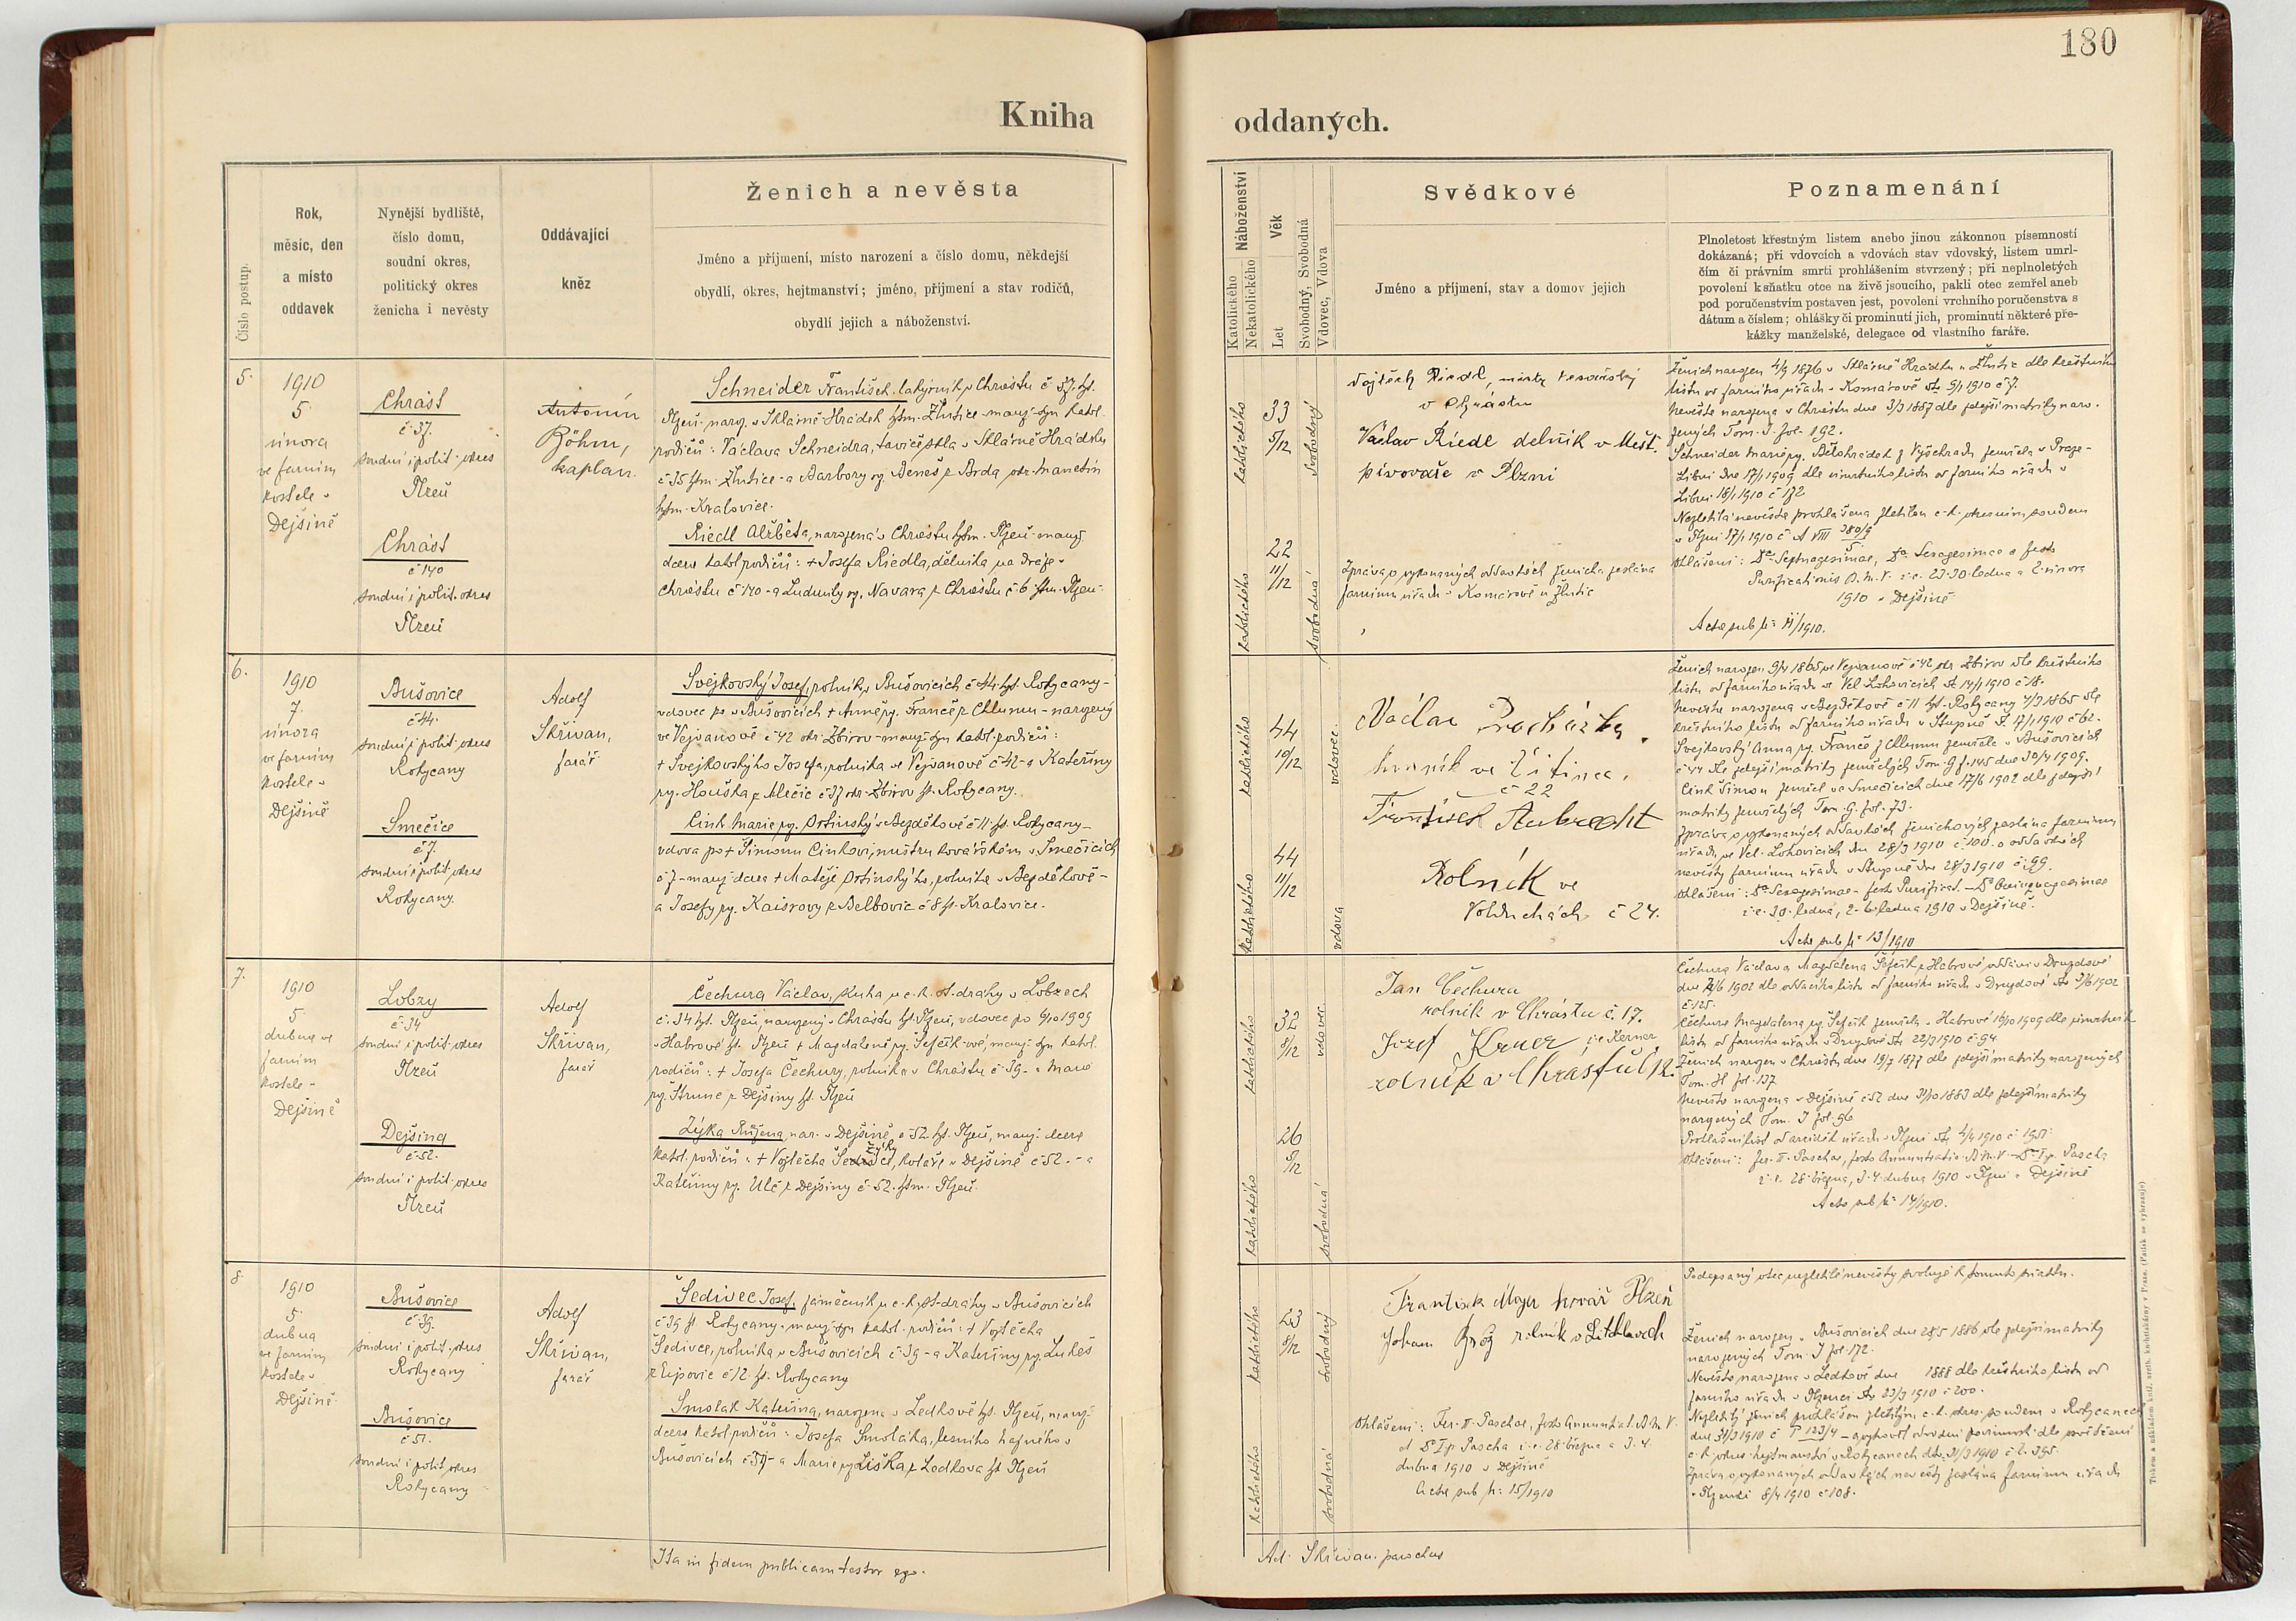 180
Kniha oddaných.
Číslo postup.
Rok,
měsíc, den
a místo
oddavek
Nynější bydliště,
číslo domu,
soudní okres,
politický okres
ženicha i nevěsty
Oddávající
kněz
Ženich a nevěsta
Jméno a příjmení, místo narození a číslo domu, někdejší
obydlí, okres, hejtmanství; jméno, příjmení a stav rodičů,
obydlí jejich a náboženství.
Náboženství
Katolického
Nekatolického
Věk
Let
Svobodný, Svobodná
Vdovec, Vdova
Svědkové
Jméno a příjmení, stav a domov jejich
Poznamenání
Plnoletost křestným listem anebo jinou zákonnou písemností
dokázaná; při vdovcích a vdovách stav vdovský, listem umrl-
čím či právním smrti prohlášením stvrzený; při neplnoletých
povolení k sňatku otce na živě jsoucího, pakli otec zemřel aneb
pod poručenstvím postaven jest, povolení vrchního poručenstva s
dátum a číslem; ohlášky či prominutí jich, prominutí některé pře-
kážky manželské, delegace od vlastního faráře.
5.
1910
5.
února
ve farním
kostele v
Dejšině
Chrást
č 37.
soudní i polit. okres
Plzeň
Chrást
č 140
soudní i polit. okres
Plzeň
Antonín
Böhm,
kaplan.
Schneider František, lakýrník v Chrástu č 37. hjt.
Plzeň - naroz. v Sklárně Hrádek hjtm. Žlutice - manž. syn katol.
rodičů: Václava Schneidra, taviče skla v Sklárně Hrádku
č 35 hjtm. Žlutice - a Barbory roz. Beneš z Brda, okr. Manetín
hjtm. Kralovice.
Riedl Alžběta, narozená v Chrástu hjtm. Plzeň - manž.
dcera katol. rodičů: + Josefa Riedla, dělníka na dráze v
Chrástu č 140 - a Ludmily roz. Navara z Chrástu č 6 hjtm. Plzeň
katolického
33
5/12
svobodný
katolického
22
11/12
svobodná
Vojtěch Riedl,
v Chrástu
Václav Riedl dělník v Měšť.
pivovaře v Plzni
Zpráva o vykonaných oddavkách ženicha zaslána
farnímu úřadu v Komárově u Žlutic
Ženich narozen 4/9 1876 v Sklárně Hrádku u Žlutic dle křestního
listu od farního úřadu v Komárově dto 5/1 1910 č 7.
Nevěsta narozena v Chrástu dne 3/3 1887 dle zdejší matriky naro-
zených Tom. I. fol. 192.
Schneider Marie roz. Bělohrádek z Vyšehradu zemřela v Praze-
Libni dne 17/1 1909 dle úmrtního listu od farního úřadu v
Libni 18/1 1910 č 172
Nezletilá nevěsta prohlášena zletilou c. k. okresním soudem
v Plzni 17/1 1910 č A VIII 380/9
Ohlášení: Dca Septuagesimae, Dca Sexagesimae a festo
Purificationis B. M. V. i. e. 23. 30. ledna a 2. února
1910 v Dejšině
Acta sub № 11/1910.
6.
1910
7.
února
ve farním
kostele v
Dejšině
Bušovice
č 44.
soudní i polit. okres
Rokycany
Smečice
č 7.
soudní i polit. okres
Rokycany
Adolf
Skřivan,
farář
Svejkovský Josef, rolník v Bušovicích č 44. hjt. Rokycany -
vdovec po v Bušovicích + Anně roz. Franče z Chlumu - narozený
ve Vejvanově č 42 okr. Zbirov - manž. syn katol. rodičů:
+ Svejkovského Josefa, rolníka ve Vejvanově č 42 - a Kateřiny
roz. Houška z Mlečic č 37 okr. Zbirov hjt. Rokycany.
Cink Marie roz. Ostinský v Bezděkově č 11. hjt. Rokycany -
vdova po + Simonu Cinkovi, mistru kovářském v Smečicích
č 7 - manž. dcera + Matěje Ostinského, rolníka v Bezděkově -
a Josefy roz. Kaisrovy z Bělbovic č 8 hjt. Kralovice.
katolického
44
10/12
vdovec
katolického
44
11/12
vdova
Václav Procházka,
v Litinec,
č 22
František Aubrecht
Rolník ve
Volduchách č 24.
Ženich narozen 9/4 1865 ve Vejvanově č 42, okr. Zbirov dle křestního
listu od farního úřadu ve Vel. Lohovicích dto 14/1 1910 č 18.
Nevěsta narozena v Bezděkově č 11 hjt. Rokycany 4/3 1865 dle
křestního listu od farního úřadu v Stupně dt. 17/1 1910 č 62.
Svejkovský Anna roz. Franče z Chlumu zemřela v Bušovicích
č 44 dle zdejší matriky zemřelých Tom. G f. 145 dne 30/4 1909.
Cink Šimon zemřel ve Smečicích dne 17/6 1902 dle zdejší
matriky zemřelých Tom. G. fol. 73.
Zpráva o vykonaných oddavkách ženichových zaslána farnímu
úřadu ve Vel. Lohovicích dne 28/3 1910 č 100. o oddavkách
nevěsty farnímu úřadu v Stupně dne 28/3 1910 č 99.
Ohlášení: Dca Sexagesimae - festo Purificat. - Dca Quinquagesimae
i. e. 30. ledna, 2. 6. ledna 1910 v Dejšině.
Acta sub № 13/1910
7.
1910
5.
dubna ve
farním
kostele v
Dejšině
Lobzy
č 34
soudní i polit. okres
Plzeň
Dejšina
č 52.
soudní i polit. okres
Plzeň
Adolf
Skřivan,
farář
Čechura Václav, sluha u c. k. st. dráhy v Lobzech
č. 34 hjt. Plzeň, narozený v Chrástu hjt. Plzeň, vdovec po 6/10 1909
v Habrově hjt. Plzeň + Magdaleně roz. Šefčík-ové, manž. syn katol.
rodičů: + Josefa Čechury, rolníka v Chrástu č 19 - a Marie
roz. Strune z Dejšiny hjt. Plzeň
Zýka Růžena, nar. v Dejšině č 52. hjt. Plzeň, manž. dcera
Zýky
katol. rodičů: + Vojtěcha, koláře v Dejšině č 52. - a
Kateřiny roz. Ulč z Dejšiny č 52. hjtm. Plzeň.
katolického
32
8/12
vdovec
katolického
26
5/12
svobodná
Jan Čechura
rolník v Chrástu č. 17.
Jozef Krner, i. e. Kerner
rolník v Chrástu č 12.
Čechura Václav a Magdalena Šefčík z Habrové oddáni v Druzdově
dne 1902 dle oddacího listu od farního úřadu v Druzdově dto 3/6 1902
č 125.
Čechura Magdalena roz. Šefčík zemřela v Habrově 16/10 1909 dle úmrtního
listu od farního úřadu v Druzdově dto 22/3 1910 č 94
Ženich narozen v Chrástu dne 19/7 1877 dle zdejší matriky narozených
Tom. H fol. 137
Nevěsta narozena v Dejšině č 52 dne 31/10 1883 dle zdejší matriky
narozených Tom. I fol. 96
Ohlášení: fer. II. Paschae, festo Annuntiatio. B. M. V. - Dca I p. Pascha
i. e. 28. března, 3. 4. dubna 1910 v Plzni v Dejšině
Acta sub № 14/1910.
8.
1910
5.
dubna
ve farním
kostele v
Dejšině
Bušovice
č 39.
soudní i polit. okres
Rokycany
Bušovice
č 51.
soudní i polit. okres
Rokycany
Adolf
Skřivan,
farář
Šedivec Josef, zámečník u c. k. st. dráhy v Bušovicích
č 39 hjt Rokycany - manž. syn katol. rodičů: + Vojtěcha
Šedivce, rolníka v Bušovicích č 39 - a Kateřiny roz. Lukeš
z Ejpovic č 12. hjt. Rokycany
Smolak Kateřina, narozena v Ledkově hjt. Plzeň, manž.
dcera katol. rodičů: Josefa Smoláka, lesního hajného v
Bušovicích č 51 - a Marie roz. Liška z Ledkova hjt Plzeň
katolického
23
8/12
svobodný
katolického
svobodná
František Mayer kovář Plzeň
Johann Brož rolník v Litohlavech
Ohlášení: Fer. II. Paschae, festo Annuntiat. B. M. V.
et Dca I p. Pascha i. e. 28. března a 3. 4.
dubna 1910 v Dejšině
Acta sub № 15/1910
Podepsaný otec nezletilé nevěsty svoluje k tomuto sňatku.
Ženich narozen v Bušovicích dne 28/5 1886 dle zdejší matriky
narozených Tom. I fol. 172.
Nevěsta narozena v Ledkově dne 1888 dle křestního listu od
farního úřadu v Plzenci dto 23/3 1910 č 200.
Nezletilý ženich prohlášen zletilým c. k. okres. soudem v Rokycanech
dne 31/3 1910 č P 123/4 - a vyhověl odvodní povinnosti dle osvědčení
c. k. okres. hejtmanství v Rokycanech dto 31/3 1910 č. 395.
Zpráva o vykonaných oddavkách nevěsty zaslána farnímu úřadu
v Plzenci 8/4 1910 č 108.
Ita in fidem publicam testor ego.
Ad. Skřivan, parochus
Tiskem a nákladem knihtiskárny v Praze. (Padělek se vyhrazuje)